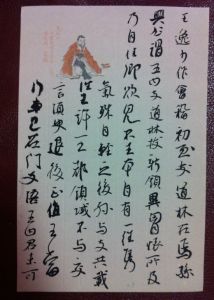 王逸少作會稽初至支道林在焉孫
興公謂王曰支道林拔新領異胸懷所及
乃自佳卿欲見不王本自有一往雋
氣殊自輕之後孫與支共載
往王許王都領域不與交
言須臾支退後正值王當
行車已在門支語王曰君未可